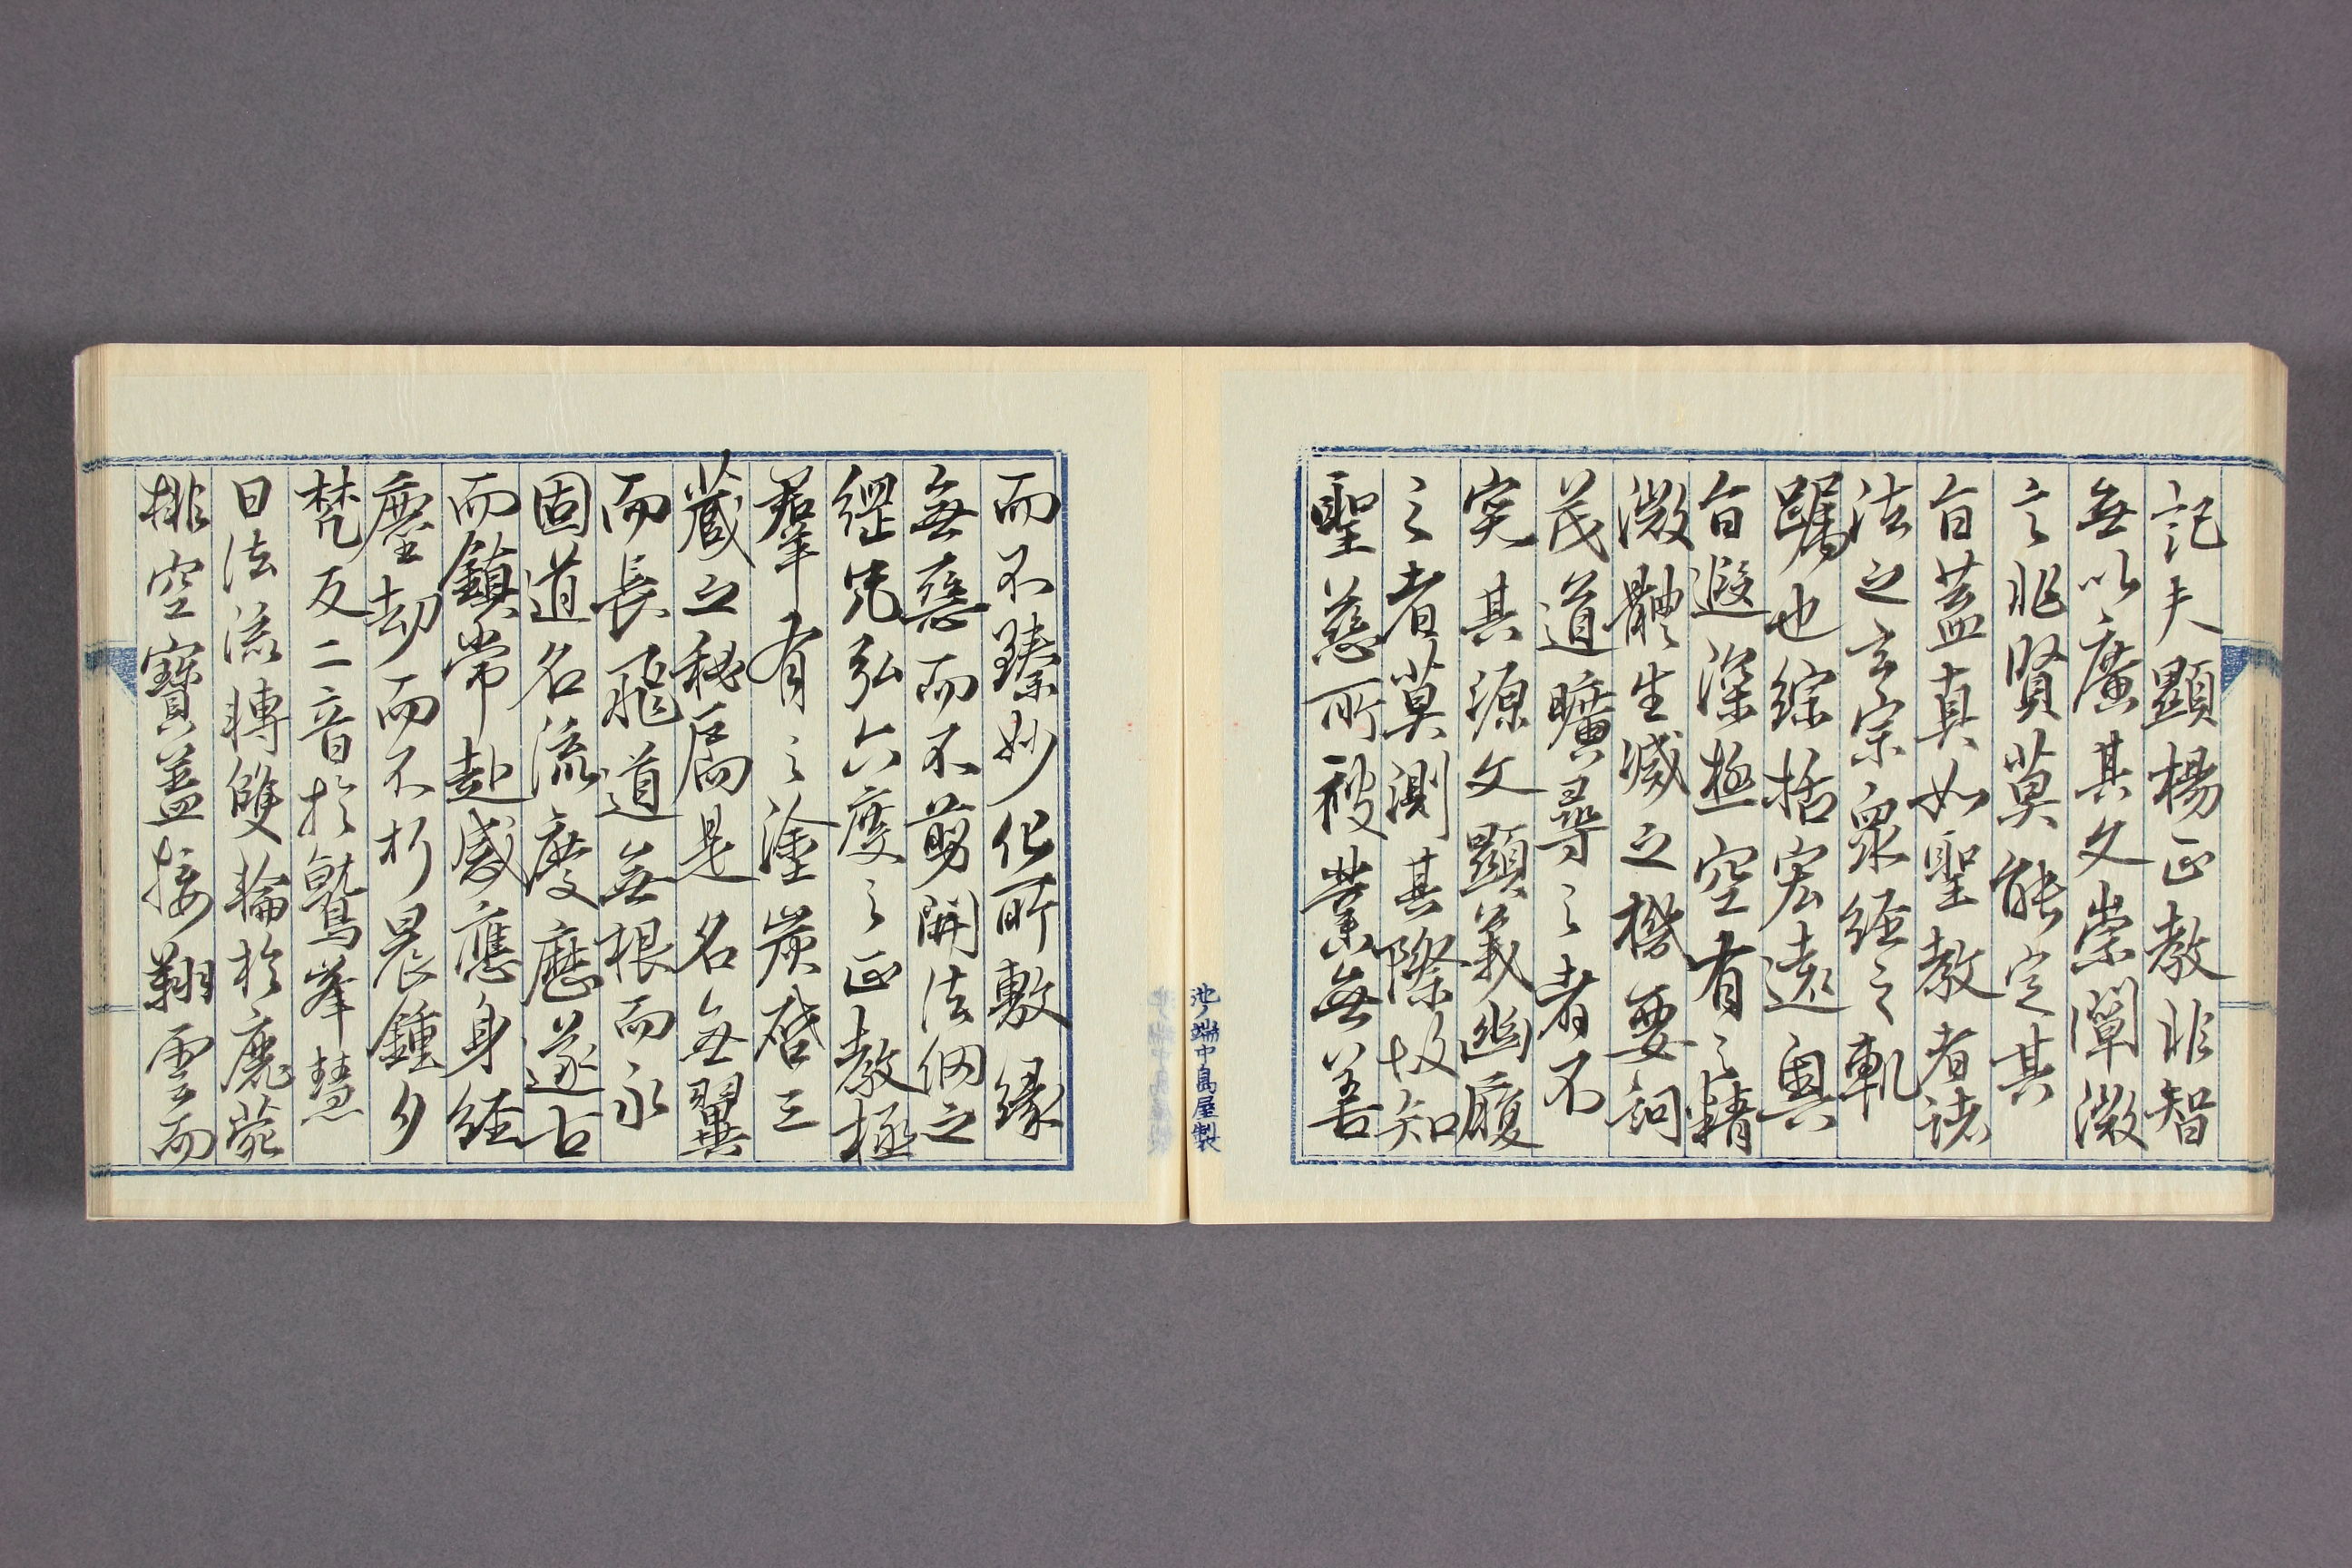 記夫顯楊正教非智
無以廣其文崇闡微
言非賢莫能定其
旨蓋真如聖教者諸
法之玄宗眾經之軌
躅也綜括宏遠奧
旨遐深極空有之精
微體生滅之機要詞
茂道曠尋之者不
究其源文顯義幽履
之者莫測其際故知
聖慈所被業無善
而不臻妙化所敷緣
無惡而不剪開法網之
綱紀弘六度之正教拯
群有之塗炭啟三
藏之秘扃是名無翼
而長飛道無根而永
固道名流慶歷遂古
而鎮常赴感應身經
塵劫而不朽晨鍾夕
梵交二音於鷲峯慧
日法流轉雙輪於鹿菀
排空寶蓋接翔雲而
池ノ端中島屋製